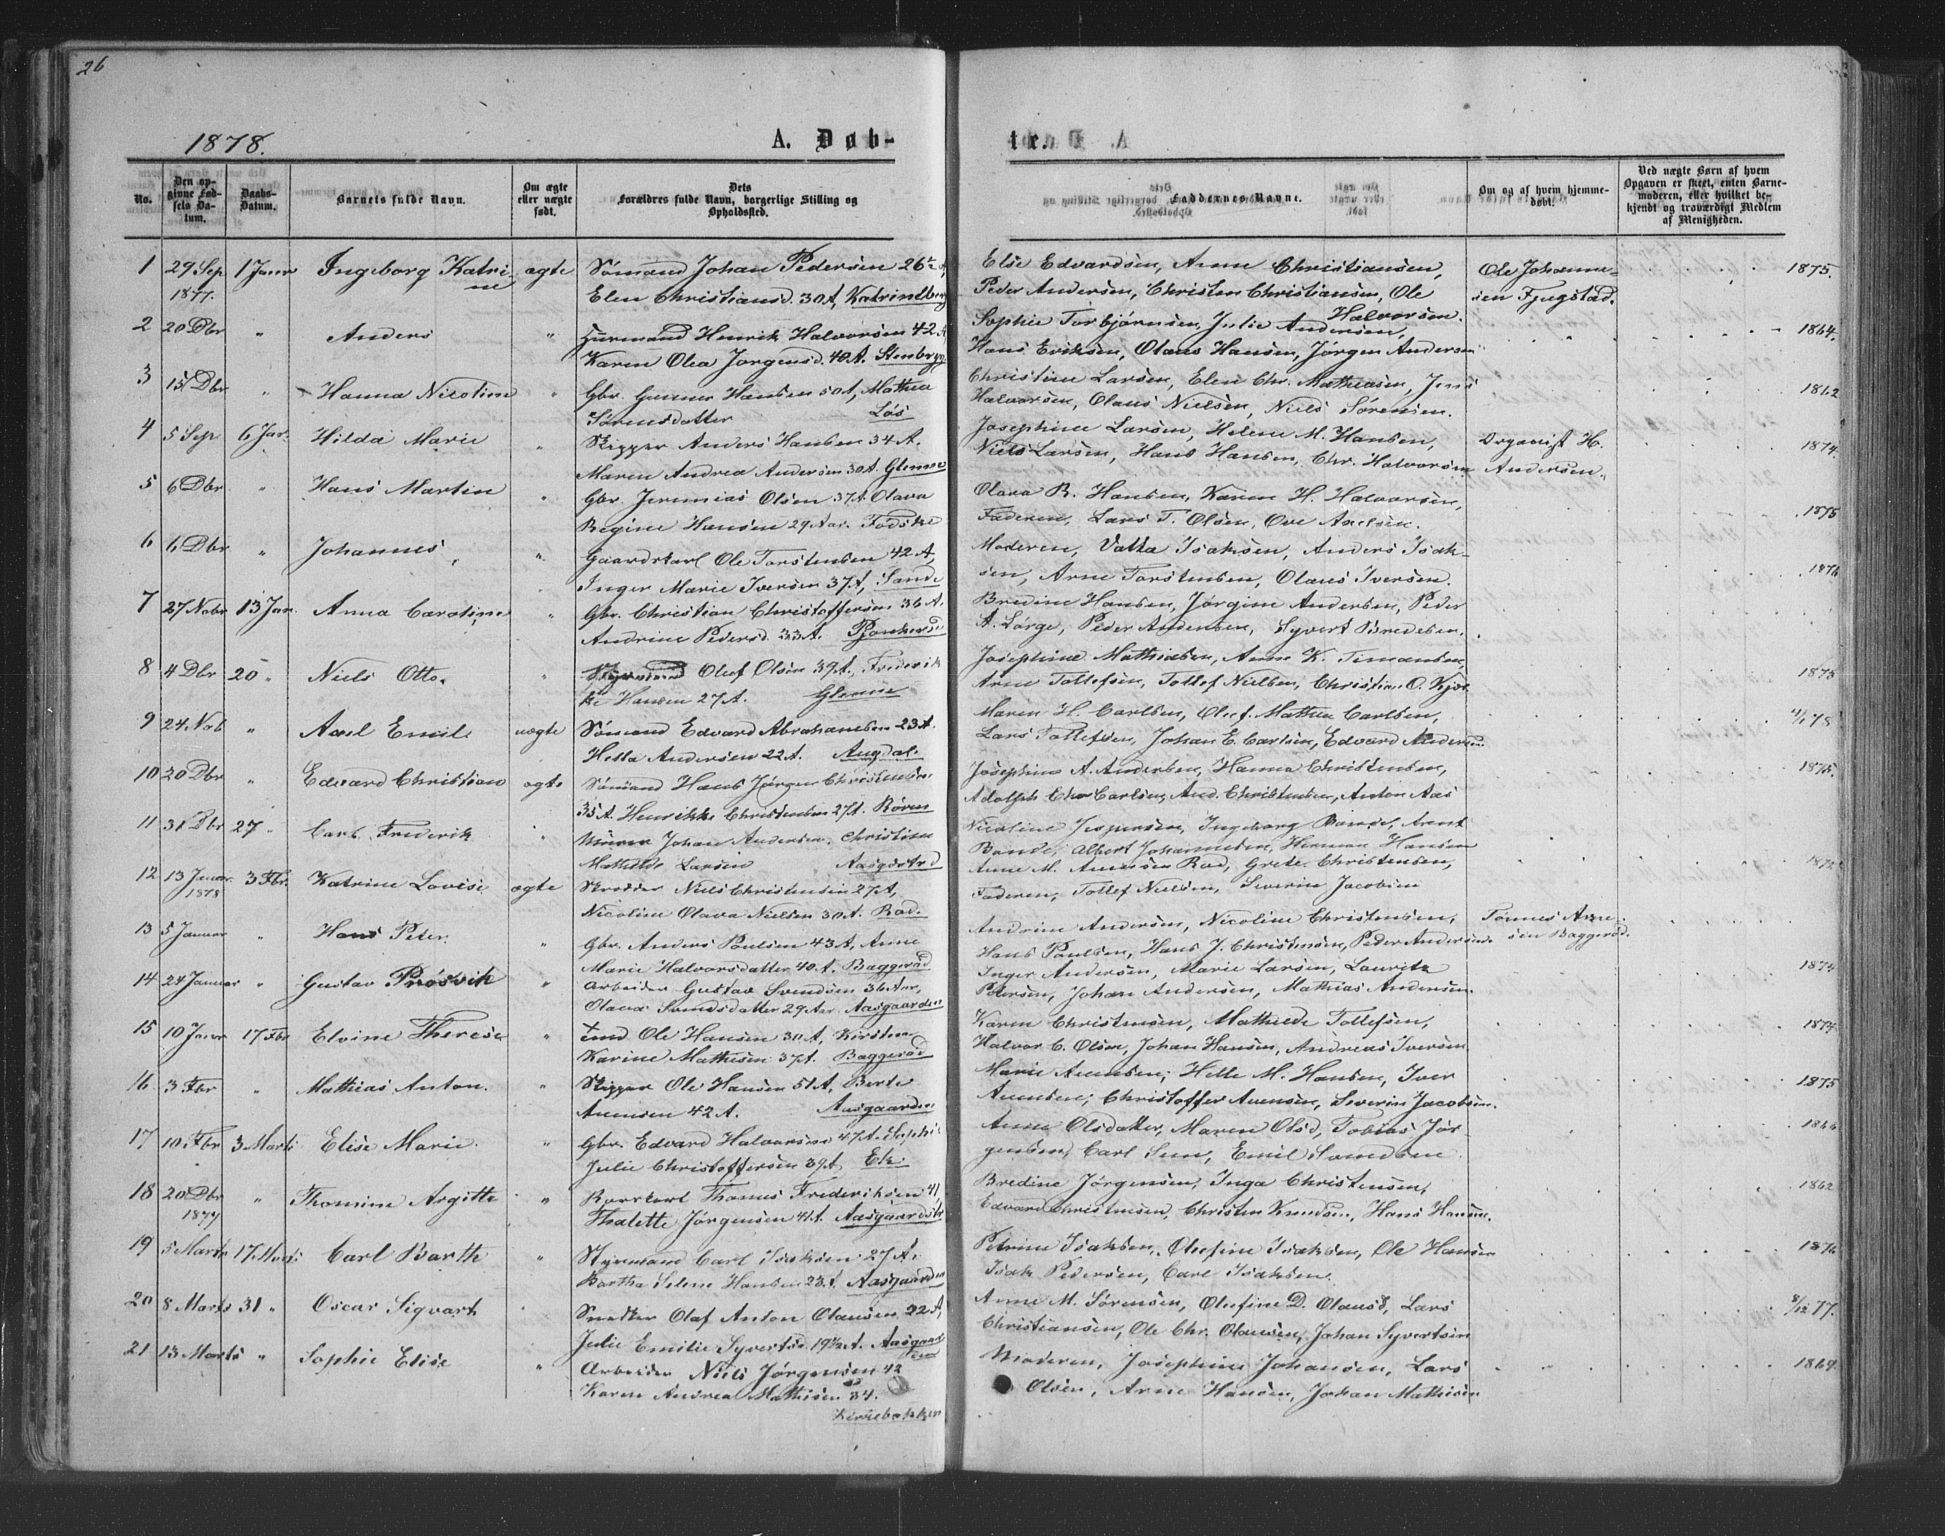 26
1878.
A. Døb-
No.
Den opgivne Fødsels Datum.
Daabs-Datum.
Barnets fulde Navn.
Om ægte eller uægte født.
Dets Forældres fulde Navn, borgerlige Stilling og Opholdssted.
1 29 Sep 1877. 1 Janr Ingeborg Katrine ægte Sømand Johan Pedersen 26½ A,
Elen Christiansd. 30 A, Katrindberg
2 20 Dbr " Anders " Henrik Halvorsen 42 A
Karen Olea Jørgensd. 40 A. Stenbryg
3 15 Dbr " Hanna Nicoline " Gbr. Gunner Hansen 50 A, Mathea
Sørensdatter Løs
4 5 Sep 6 Jan. Hilda Marie " Skipper Anders Hansen 34 A.
Maren Andrea Andersen 30 A. Glenne
5 6 Dbr " Hans Martin " Gbr. Jeremias Olsen 37 A. Olava
Regine Hansen 29 Aar. Fodske
6 6 Dbr " Johannes " Gaardskarl Ole Torstensen 42 A,
Inger Marie Iversen 37 A, Sande
7 27 Nobr 13 Jan. Anna Caroline " Gbr. Christian Christoffersen 36 A.
Andrine Pedersd. 33 A.
8 4 Dbr 20 " Niels Otto. " Styrmand Oluf Olsen 39 A. Frederik
ke Hansen 27 A. Glenne
9 24 Nob " Axel Emil uægte Sømand Edvard Abrahamsen 23 A.
Hella Andersen 22 A. Augdal.
10 20 Dbr " Edvard Christian ægte Sømand Hans Jørgen Christensen
35 A. Henrikke Christensen 27 A. Røren
11 31 Dbr 27 " Carl Frederik " Murer Johan Andersen, Christine
Mathilde Larsen Aasgaardstd
12 13 Januar 1878 3 Fbr. Katrine Lovise ægte Skredder Niels Christensen 27 A,
Nicoline Olava Nielsen 30 A. Rød.
13 5 Januar " Hans Peter. " Gbr. Anders Poulsen 43 A, Anne
Marie Halvorsdatter 40 A. Baggerød
14 24 Januar " Gustav Prøsvik " Arbeider Gustav Svendsen 36 Aar,
Olava Svendsdatter 29 Aar. Aasgaarden
15 10 Janr 17 Fbr Elvine Therese " Ole Hansen 30 A, Kirsten
Karine Mathisen 37 A. Baggerød
16 3 Fbr " Mathias Anton. " Skipper Ole Hansen 51 A, Berte
Avensen 42 A. Aasgaarden
17 10 Fbr 3 Marts Elise Marie. " Gbr. Edvard Halvorsen 47 A. Sophie
Julie Christoffersen 39 A. Ek.
18 20 Dbr 1877 " Thomine Argitte " Thomas Frederiksen 41,
Thalette Jørgensen 41 A. Aasgaardstr
19 5 Marts 17 Marts Carl Barth " Styrmand Carl Isaksen 27 A.
Bartha Selene Hansen 23 A. Aasgaarden
20 8 Marts 31 " Oscar Sigvart " Snedker Olaf Anton Olausen 22 A,
Julie Emilie Syvertsd 19½ A. Aasgaard
21 13 Marts " Sophie Elise " Arbeider Niels Jørgensen 42
Karen Andrea Mathisen 34.
Kirkebakken
te.
Faddernes Navne.
Om og af hvem hjemmedøbt.
Ved uægte Barn af hvem Opgaven er skeet, enten Barnemoderen, eller hvilket bekjendt og troværdigt Medlem af Menigheden.
Else Edvardsen, Anne Christiansen, Ole Johanne- 1875.
Peder Andersen, Christen Christiansen, Ole Halvorsen. sen Fjugstad.
Sophie Torbjørnsen, Julie Andersen, 1864.
Hans Eriksen, Olaus Hansen, Jørgen Andersen
Christine Larsen, Elen Chr. Mathiasen, Jens 1862
Halvorsen, Olaus Nielsen, Niels Sørensen.
Josephine Larsen, Helene M. Hansen, Organist H. 1874.
Niels Larsen, Hans Hansen, Chr. Halvorsen Andersen.
Olava B. Hansen, Karen H. Halvorsen, 1875
Faderen, Lars T. Olsen, Ove Axelsen.
Moderen, Valla Isaksen, Anders Isak- 1876
sen, Arne Torstensen, Olaus Iversen.
Bredine Hansen, Jørgine Andersen, Peder
A. Lørge, Peder Andersen, Syvert Bredesen.
Josephine Mathiasen, Anne K. Timansen, 1875
Arne Tollefsen, Tollef Nielsen, Christian O. Kjær
Maren H. Carlsen, Oluf. Mathea Carlsen, 4/1 78
Lars Tollefsen, Johan E. Carlsen, Edvard Andersen.
Josephine A. Andersen, Hanna Christensen, 1875.
Adolph Chr Carlsen, And. Christensen, Anton Aas
Nicoline Jespersen, Ingeborg Bonde, Arent
Bonde, Albert Johannesen, Herman Hansen
Anne M. Andersen Rød, Grete Christensen, 1872
Faderen, Tollef Nielsen, Severin Jacobsen
Andrine Andersen, Nicoline Christensen, Tønnes Arne-
Hans Paulsen, Hans J. Christensen, Peder Andersen. sen Baggerød.
Inger Andersen, Marie Larsen, Lauritz 1874
Petersen, Johan Andersen, Mathias Andersen.
Karen Christensen, Mathilde Tollefsen, 1874
Halvor C. Olsen, Johan Hansen, Andreas Iversen.
Marie Avensen, Helle M. Hansen, Iver 1875
Avensen, Christoffer Avensen, Severin Jacobsen.
Anne Olsdatter, Maren Olsd, Tobias Jør- 1866
gensen, Carl Sem, Emil Svendsen
Bredine Jørgensen, Inga Christensen, 1862
Edvard Christensen, Christen Knudsen, Hans Hansen.
Petrine Isaksen, Olufine Isaksen, Ole Hansen 1876
Isak Pedersen, Carl Isaksen.
Anne M. Sørensen, Olufine D. Olausd, Lars 8/12 77.
Christiansen, Ole Chr. Olausen, Johan Syvertsen
Moderen, Josephine Johansen, Lars 1869.
Olsen, Arne Hansen, Johan Mathisen